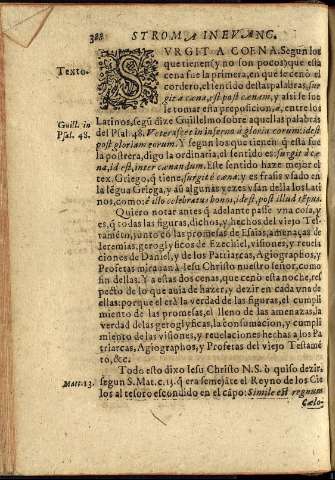 388 STROMA IN EVANG.
Texto.
SVRGIT A COENA. Segun los
que tienen (y no son pocos) que esta
cena fue la primera, en que se cenò el
cordero, el sentido destas palabras, sur
git à cæna, est post cænam, y assi se sue
le tomar esta preposicion, à, entre los
Guill. in
Psal. 48.
Latinos, segũ dize Guillelmo sobre aquellas palabras
del Psal. 48. Veterascet in inferno à gloria eorum: id est
post gloriam eorum. Y segun los que tienen q̃ esta fue
la postrera, digo la ordinaria, el sentido es: surgit à cæ
na, id est, inter cænandum. Este sentido haze mejor el
tex. Griego, q̃ tiene, surgit è cæna: y es frasis vsado en
la lẽgua Griega, y aũ algunas vezes vsan della los Lati
nos, como: è illo celebratus honos, id est, post illud tẽpus.
Quiero notar antes q̃ adelante passe vna cosa, y
es, q̃ todas las figuras, dichos, y hechos del viejo Tes-
tamẽto, junto cõ las promesas de Esaias, amenaças de
Ieremias, geroglyficos de Ezechiel, visiones, y reuela
ciones de Daniel, y de los Patriarcas, Agiographos, y
Profetas mirauan à Iesu Christo nuestro señor, como
fin dellas. Y a estas dos cenas, que cenò esta noche, res
pecto de lo que auia de hazer, y dezir en cada vna de
ellas: porque el erà la verdad de las figuras, el cumpli
miento de las promesas, el lleno de las amenazas, la
verdad de las geroglyficas, la consumacion, y cumpli
miento de las visiones, y reuelaciones hechas a los Pa
triarcas, Agiographos, y Profetas del viejo Testamẽ
to, &c.
Todo esto dixo Iesu Christo N. S. ò quiso dezir,
Matt. 13.
segun S. Mat. c. 13. q̃ era semejãte el Reyno de los Cie
los al tesoro escondido en el cãpo: Simile est regnum
Cælo-